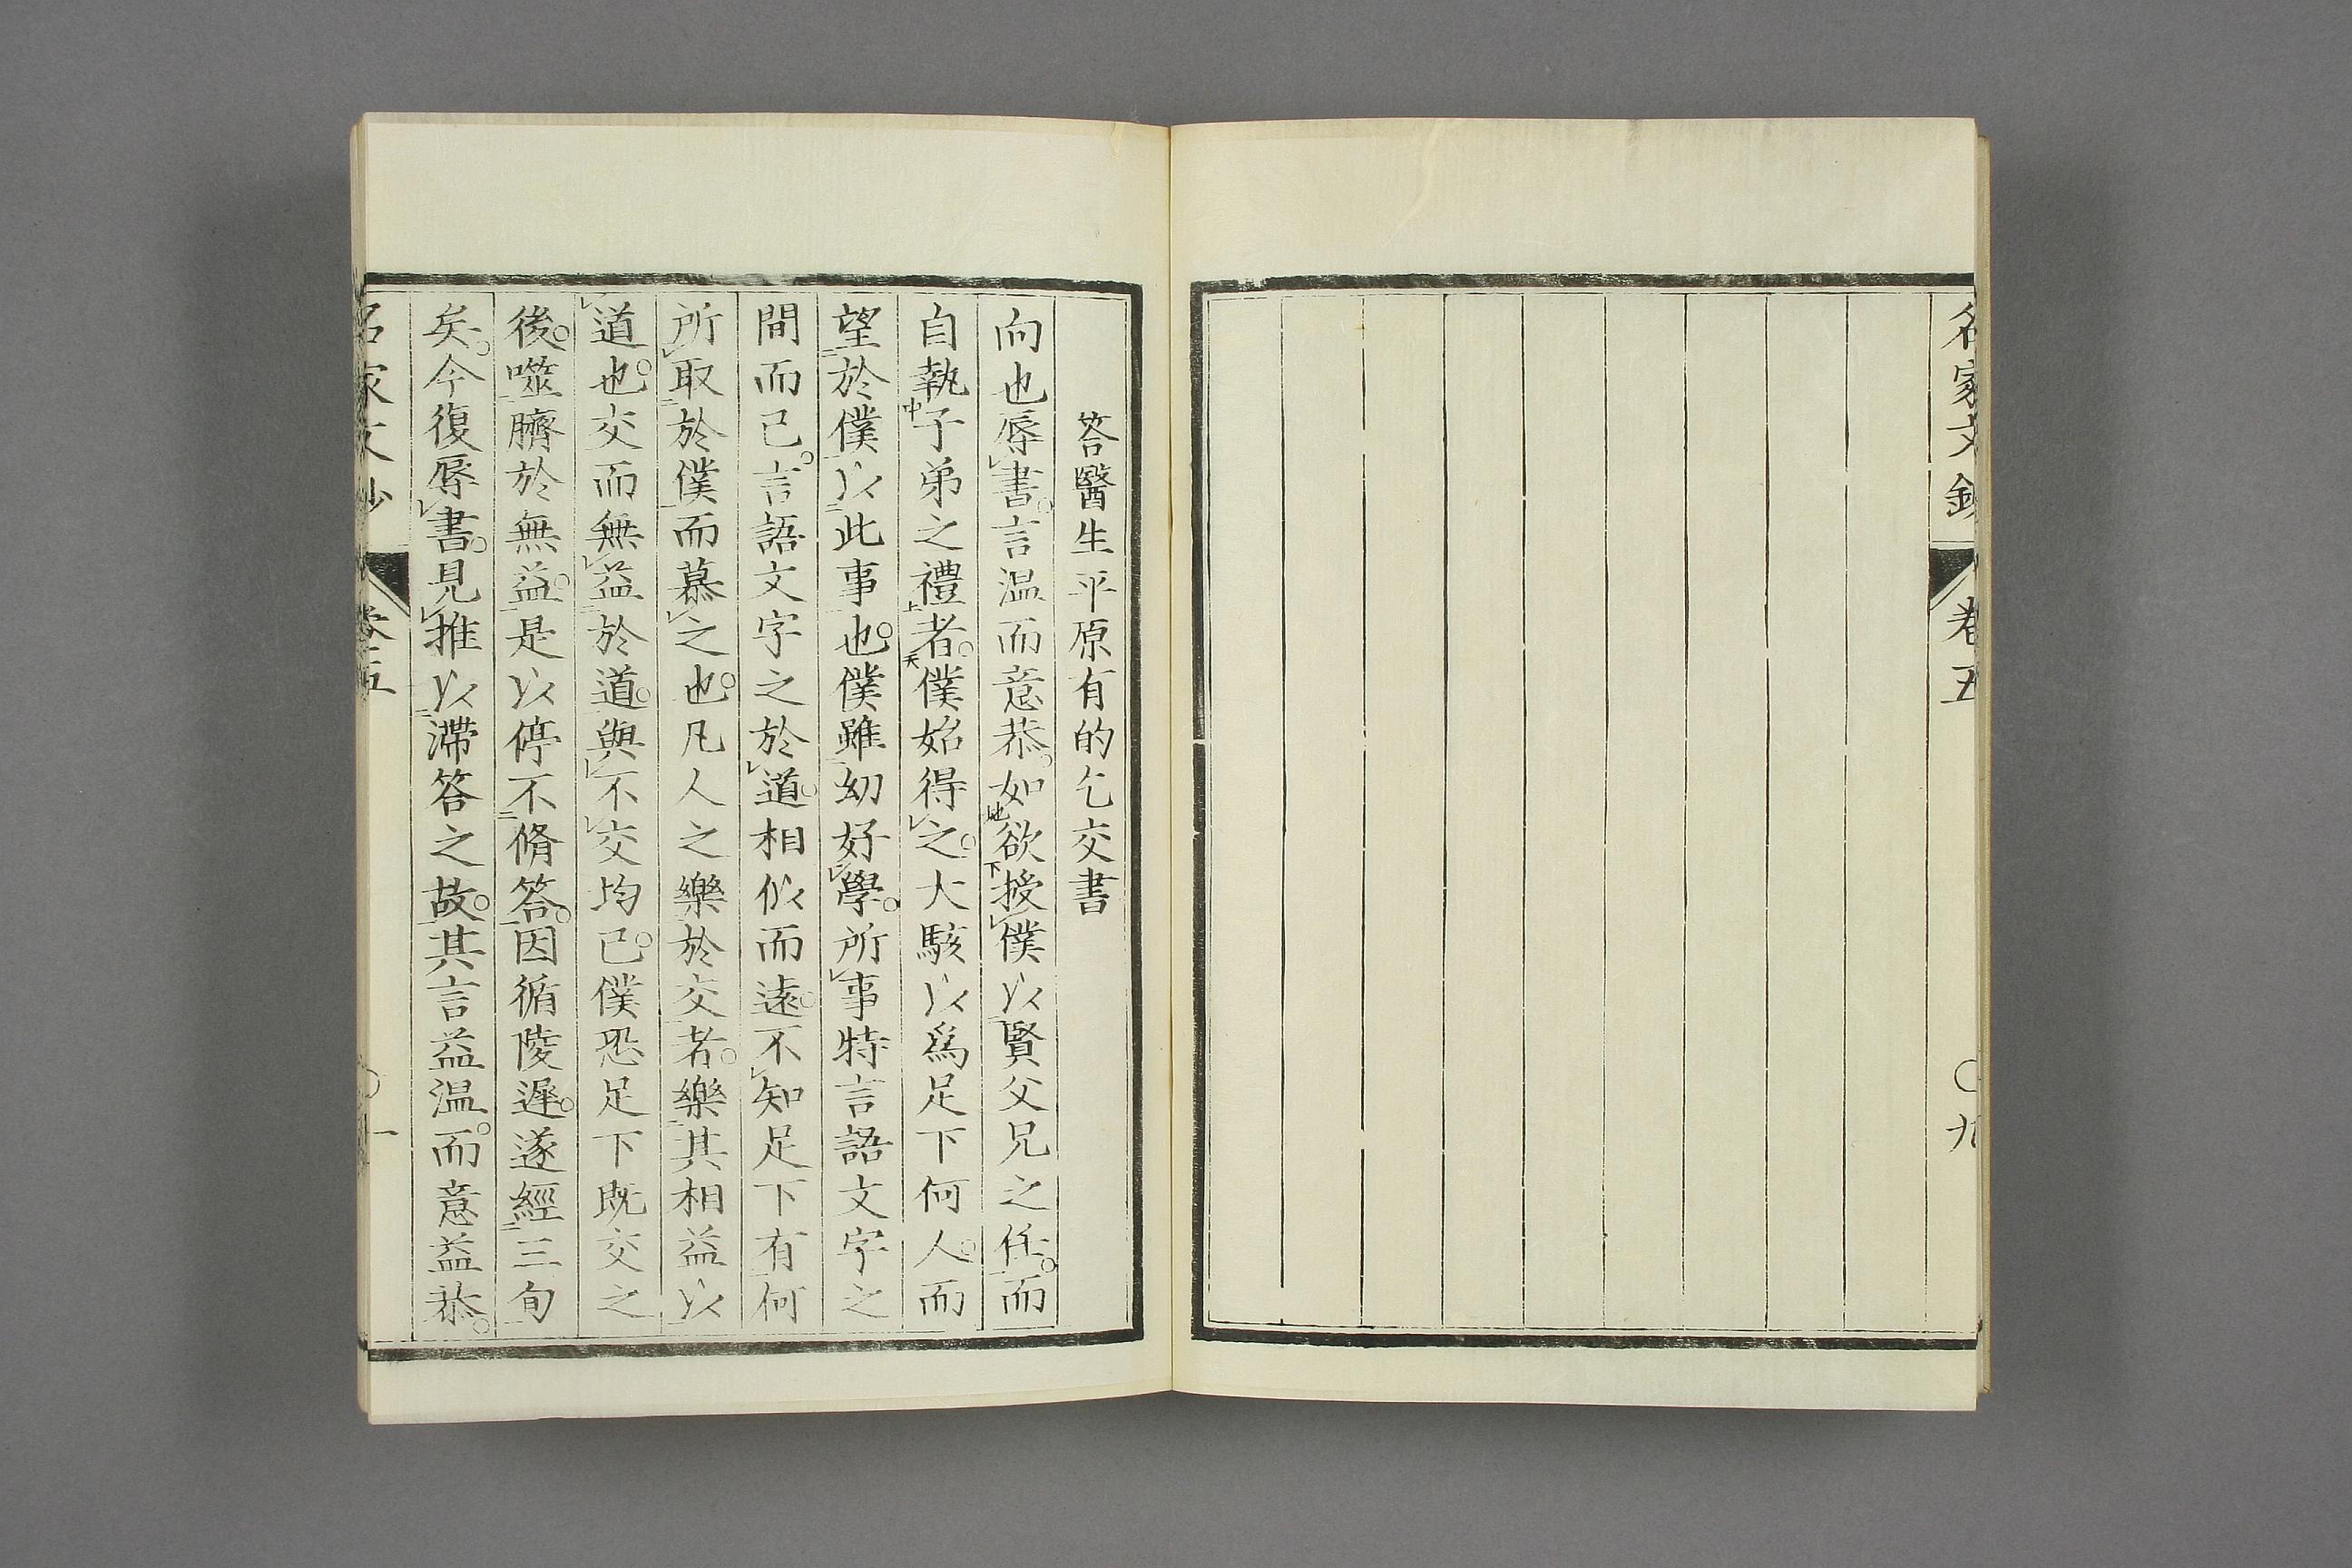 名家文鈔 卷五 〇九
答醫生平原有的乞交書
向也辱書。言温而意恭。如欲授僕以賢父兄之任。而
自執子弟之禮者。僕始得之。大駭以爲足下何人。而
望於僕以此事也。僕雖幼好學。所事特言語文字之
間而已。言語文字之於道。相似而遠。不知足下有何
所取於僕而慕之也。凡人之樂於交者。樂其相益以
道也。交而無益於道。與不交均已。僕恐足下既交之
後。噬臍於無益。是以停不脩答。因循陵遲。遂經三旬
矣。今復辱書。見推以滯答之故。其言益温。而意益恭。
名家文鈔 卷五